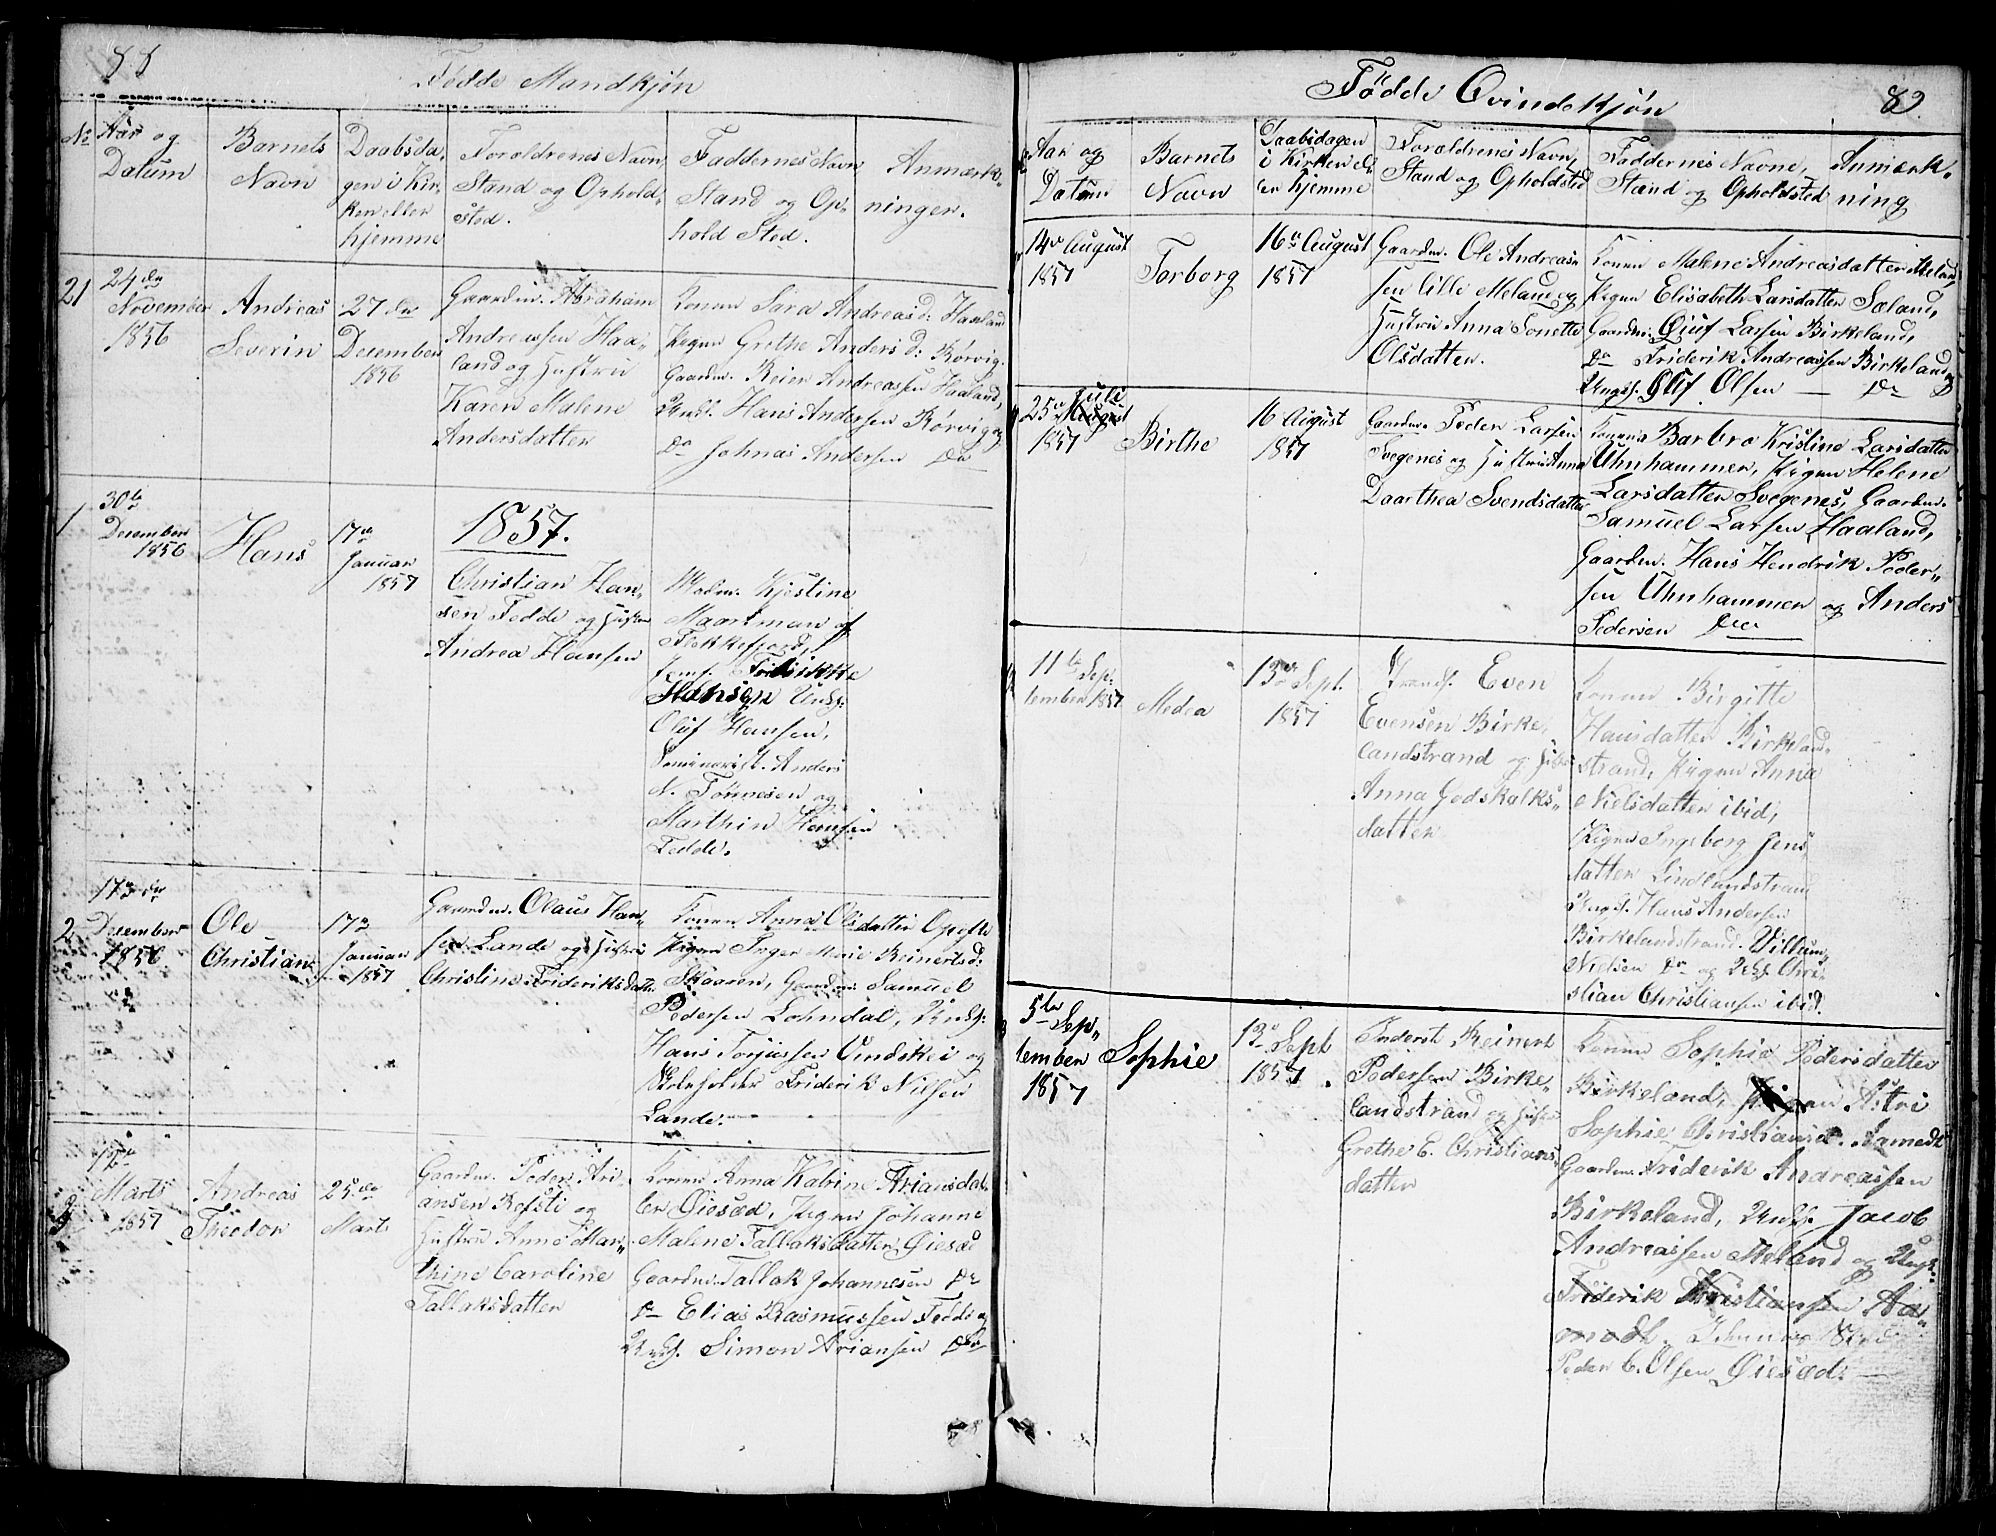 88
Fødde Mandkjøn
No
Aar og
Datum
Barnets
Navn
Daabsda-
gen i Kir-
ken eller
hjemme
Foroldrenes Navn
Stand og Ophold,,
Sted.
Faddernes Navn
Stand og Op,,
hold Sted.
Anmærk,,
ninger.
21
24 de
November
1856
Andreas
Severin
27 de
Desember
1856
Gaardm. Abraham
Andreassen Haa,,
land og Hustru
Karen Malene
Andersdatter
Konen Sara Andreasd: Haaland
Pigen Grethe Anders d: Rørvig.
Gaardm. Reier Andreassen Haaland,
Ungk. Hans Andersen Rørvig og
Do Johnas Andersen Do
1857.
1
30te
Desember
1856
Hans
17de
Januar
1857
Christian Han,,
sen Fedde og Hustru
Andrea Hansen
Madm. Kjestine
Maartman af
Flekkefjord,
Jomf. Fredrikke
Hansen Ungk:
Oluf Hansen,
Seminarist. Anders
N. Tønnesen og
Marthin Hansen
Fedde.
2
17de
Desember
1856
Ole
Christian
17de
Januar
1857
Gaardm. Olaus Han,,
sen Lande og Hustru
Christine Frideriksdatter
Konen Anna Olsdatter Opofte
Pigen Inger Marie Reinertsd:
Skaaren, Gaardm. Samuel
Pedersen Lohndal, Ungk:
Hans Torjussen Omdskei og
Friderik Nilsen
Lande.
3
12te
Marts
1857
Andreas
Theodor
25de
Marts
Gaardm. Peder Ari,,
ansen Rofsti og
Hustru Anne Mar,,
thine Caroline
Tallaksdatter
Konen Anna Katrine Ariansdat,,
ter Øiesæd, Pigen Johanne
Malene Tallaksdatter Øiesæd
Gaardm. Tallak Johannesen Do
Do Elias Rasmussen Fedde og
Ungk. Simon Ariansen Do
Fødde Qvindekjøn
89
Aar og
Datum
Barnets
Navn
Daabsdagen
i Kirken el-
ler hjemme
Forældrenes Navn,
Stand og Opholdsted
Faddernes Navne,
Stand og Opholdsted
Anmærk,,
ning
14de August
1857
Torborg
16de August
1857
Gaardm. Ole Andreas,,
sen lille Meland og
Hustru Anna Sonette
Olsdatter.
Konen Malene Andreasdatter Meland,
Pigen Elisabeth Larsdatter Sæland,
Gaardm. Oluf Larsen Birkeland,
Do Friderik Andreassen Birkeland og
Ungk. Oluf Olsen — Do
Juli
25de August
1857
Birthe
16 August
1857
Gaardm. Peder Larsen
Svegenes og Hustru Anna
Daarthea Svendsdatter
Konen Barbro Kristine Larsdatter
Uhnhammer, Pigen Helene
Larsdatter Svegenes, Gaardm.
Samuel Larsen Haaland,
Gaardm. Hans Hendrik Peder,,
sen Uhnhammer og Anders
Pedersen Do
11te Sep,,
tember 1857
Medea
13de Sept.
1857
Strands. Even
Evensen Birke,,
landstrand og Hustru
Anna Godskalks,,
datter
Konen Birgitte
Hansdatter Birkeland,,
strand, Pigen Anna
Nielsdatter ibid,
Pigen Ingeborg Jens,,
datter Lindlandstrand
Ungk. Hans Andersen
Birkelandstrand. Villum
Nielsen Do og Ungk Chri,,
stian Christiansen ibid.
5te Sep,,
tember
1857
Sophie
13de Sept
1857.
Inderst Reinert
Pedersen Birke,,
landstrand og Hustru
Grethe E. Christians,,
datter
Konen Sophie Pedersdatter
Birkeland, Pigen Astri
Sophie Christiansd. Aamodt
Gaardm. Friderik Andreassen
Birkeland, Ungk. Jacob
Andreassen Meland og Ungk.
Friderik Kristiansen Aa,,
modt.
Peder C. Olsen Øiesæd. —